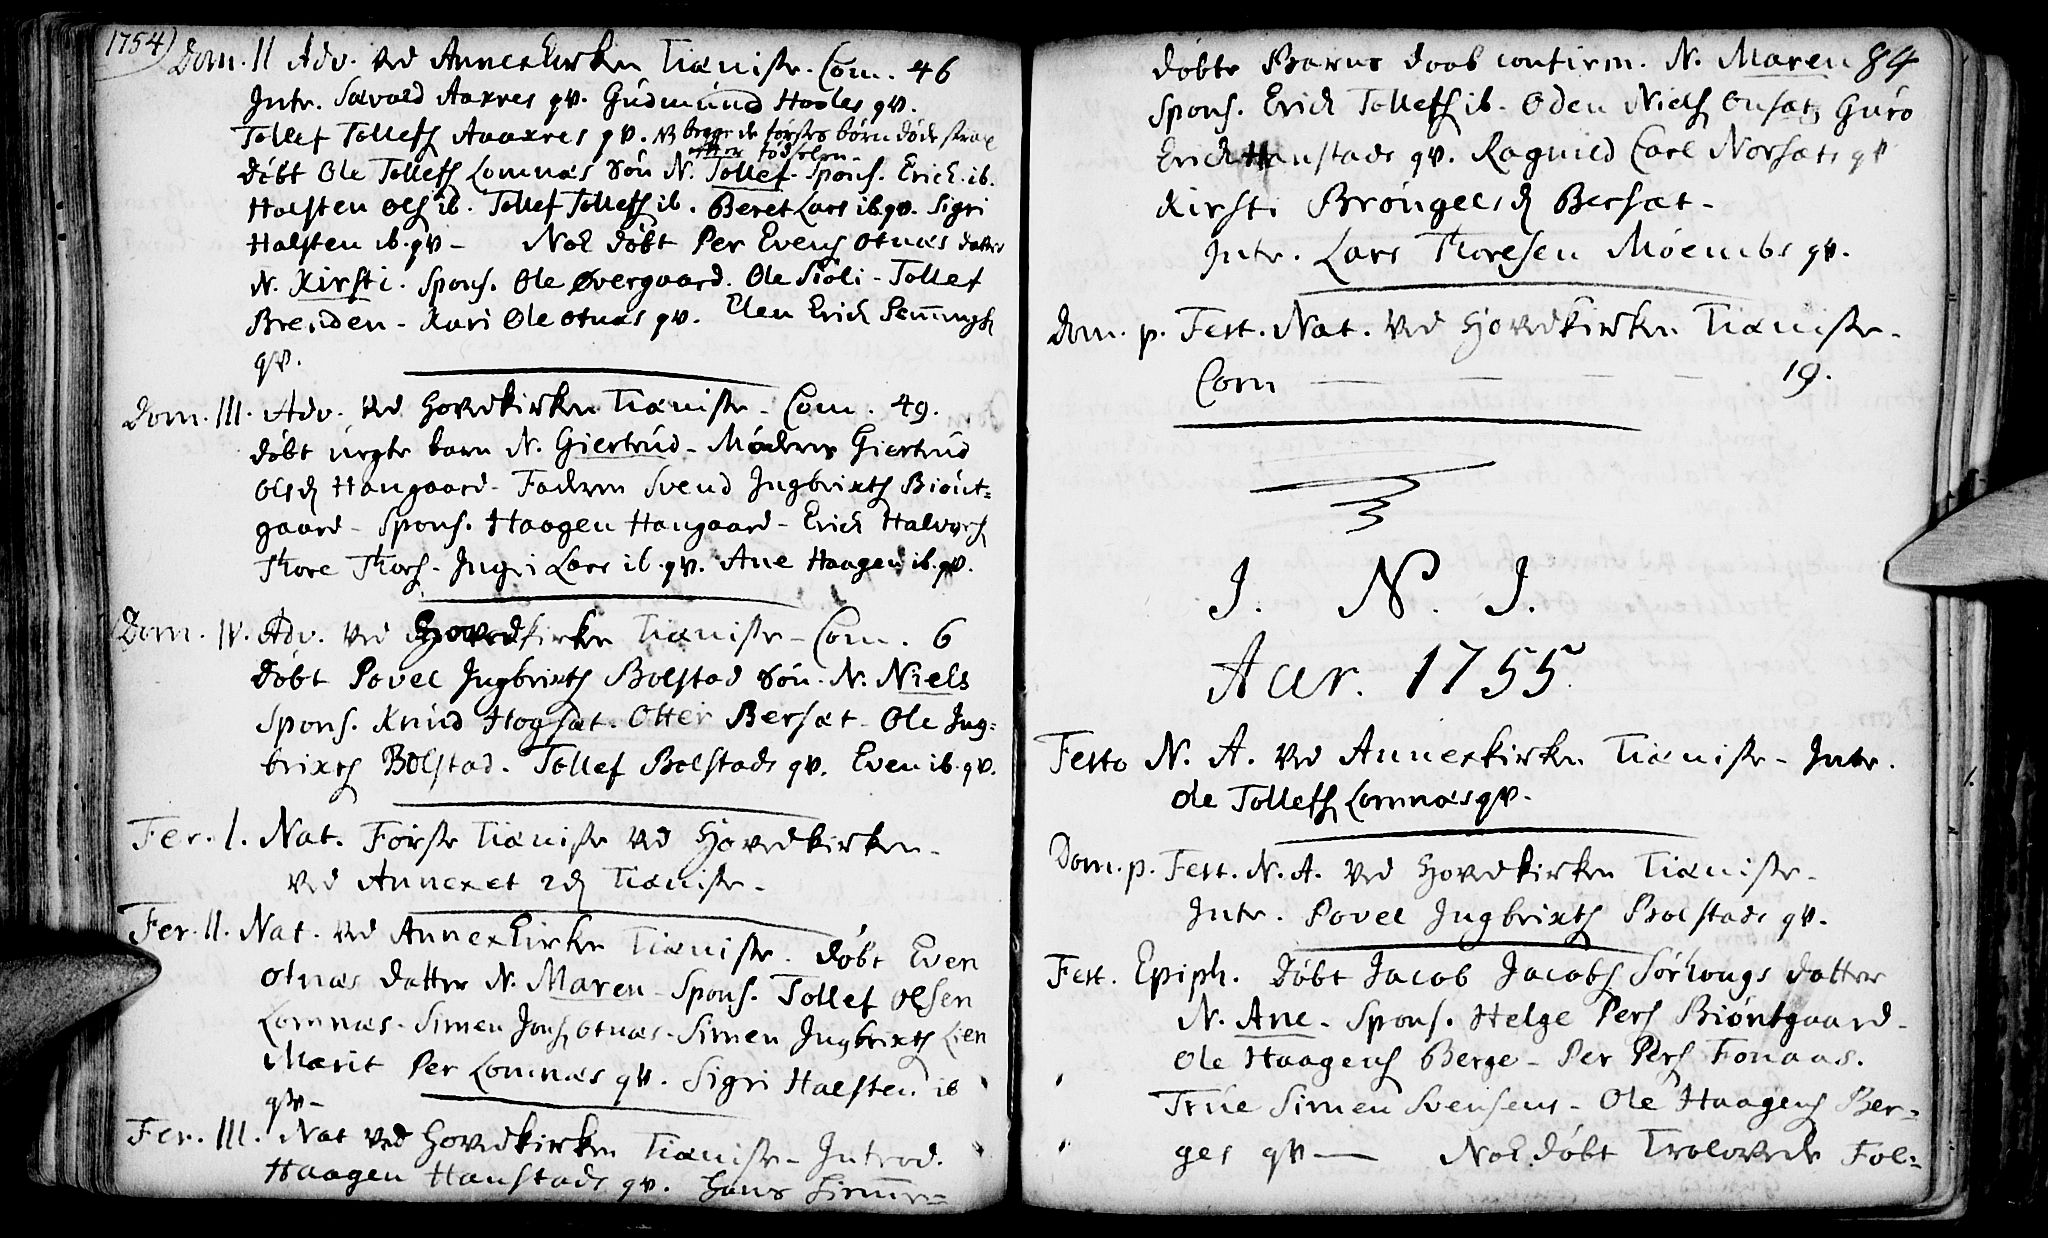 1754)
Dom. II Adv. ved Annexkirken Tieniste. Com. 46
Intr. Sævald Aaxres qv. Gudmund Hooles qv.
Tollef Tollefs Aaaxres qv. NB begge de førstes børn døde strax
efter fødselen.
døbt Ole Tollefs Lomnæs Søn N. Tollef. Spons. Erich ib.
Halsten Ols ib. Tollef Tollefs ib. Beret Lars ib. qv. Sigri
Halsten ib. qv - Nok døbt Per Evens Otnæs datter
N. Kirsti. Spons. Ole Øvergaard. Ole Siöli - Tollef
Brenden - Kari Ole Otnæs qv. Elen Erich
qv.
Dom. III. Adv. ved Hovedkirken Tieniste - Com. 49.
døbt uegte barn N. Giertrud - Moderen Giertrud
Olsd Haugaard - Faderen Svend Ingbrixts Biönt=
gaard - Spons. Haagen Haugaard - Erich Halvors
Thore Thors - Ingri Lars ib. qv. Ane Haagen ib. qv.
Dom. IV. Adv. ved Hovedkirken Tieniste - Com. 6
døbt Povel Ingbrixts Bolstad Søn. N. Niels
Spons. Knud Hogsæt. Otter Bersæt - Ole Ing=
brixts Bolstad. Tollef Bolstads qv. Even ib. qv.
Fer. I. Nat. Første Tieniste ved Hovedkirken -
ved Annexet 2d Tieniste -
Fer. II. Nat. ved Annexkirken Tieniste. døbt Even
Otnæs datter N. Maren - Spons. Tollef Olsen
Lomnæs - Simen Jons Otnæs - Simen Ingbrixts Lien
Marit Per Lomnæs qv. Sigri Halsten ib
qv -
Fer. III. Nat ved Hovedkirken Tieniste - Introd.
Haagen Hanstads qv. Hans
døbte Barns daab confirm. N. Maren 84
Spons. Erich Tollefs ib. Oden Niels Onsæt, Guro
Erich Hanstads qv. Ragnild Carl Norsæts qv
Kirsti Bröngelsd Bersæt -
Intr. Lars Thoresen Möembs qv.
Dom. p. Fest. Nat. ved Hovedkirken Tieniste -
Com — — — 19.
I. N. I.
Aar. 1755
Festo N. A. ved Annexkirken Tieniste - Intr.
Ole Tollefs Lomnæs qv.
Dom. p. Fest. N. A. ved Hovedkirken Tieniste -
Intr. Povel Ingbrixts Bolstads qv.
Fest. Epiph. døbt Jacob Jacobs Sörhougs datter
N. Ane - Spons. Helge Pers Biöntgaard -
Ole Haagens Berge - Per Pers Fonaas.
Trüe Simen Svensens - Ole Haagens Ber=
ges qv — Nok døbt Trolovede Fol=